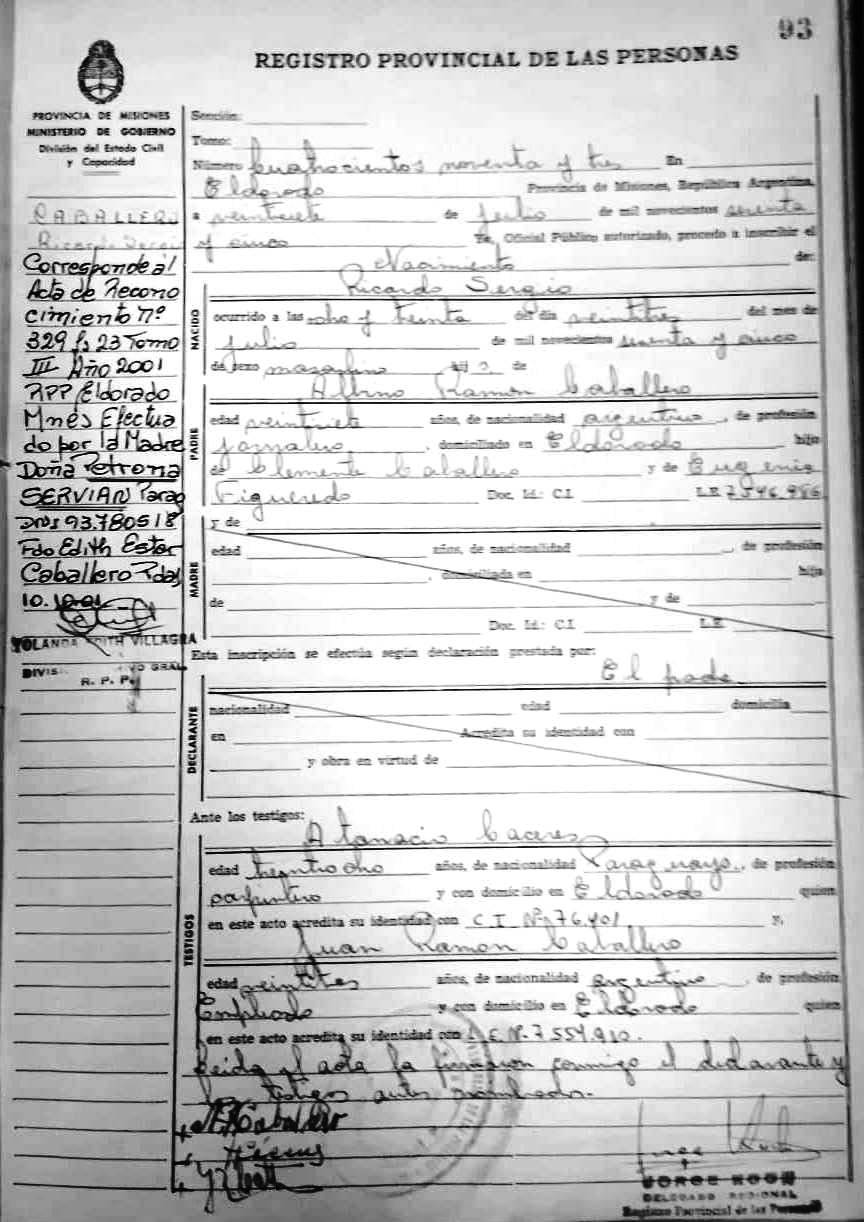 93
REGISTRO PROVINCIAL DE LAS PERSONAS
PROVINCIA DE MISIONES
MINISTERIO DE GOBIERNO
División del Estado Civil
y Capacidad
CABALLERO
Ricardo Sergio
Corresponde al
Acta de Recono
cimiento nº
329 fº 23 Tomo
III Año 2001
RPP Eldorado
Mnes Efectua
do por la Madre
Doña Petrona
SERVIAN Parag
DNI 93.780518
Fdo Edith Ester
Caballero
10.10.01
YOLANDA EDITH VILLAGRA
R. P. P.
Sección:
Tomo:
Número Cuatrocientos noventa y tres En
Eldorado Provincia de Misiones, República Argentina,
a veintisiete de Julio de mil novecientos sesenta
y cinco Yo, Oficial Público autorizado, procedo a inscribir el
Nacimiento de:
NACIDO
Ricardo Sergio
ocurrido a las ocho y treinta del día veintitres del mes de
julio de mil novecientos sesenta y cinco
de sexo masculino hijo de
PADRE
Albino Ramon Caballero
edad veintisiete años, de nacionalidad argentino, de profesión
jornalero, domiciliado en Eldorado hijo
de Clemente Caballero y de Eugenia
Figueredo Doc. Id.: C.I. L.E. 7.546.986
MADRE
y de
edad años, de nacionalidad, de profesión
, domiciliada en hija
de y de
Doc. Id.: C.I. L.E.
Esta inscripción se efectúa según declaración prestada por:
El padre
DECLARANTE
nacionalidad edad domicilia
en Acredita su identidad con
y obra en virtud de
Ante los testigos:
TESTIGOS
Atanacio Caceres
edad treintiocho años, de nacionalidad Paraguayo, de profesión
carpintero y con domicilio en Eldorado quien
en este acto acredita su identidad con C.I. Nº 76.401 y,
Juan Ramon Caballero
edad veintitres años, de nacionalidad argentino, de profesión
Empleado y con domicilio en Eldorado quien
en este acto acredita su identidad con L.E. Nº 7.554.910.
Leida el acta la firmaron conmigo el declarante y
los testigos antes nombrados.
Caballero
JORGE
DELEGADO REGIONAL
Registro Provincial de las Personas